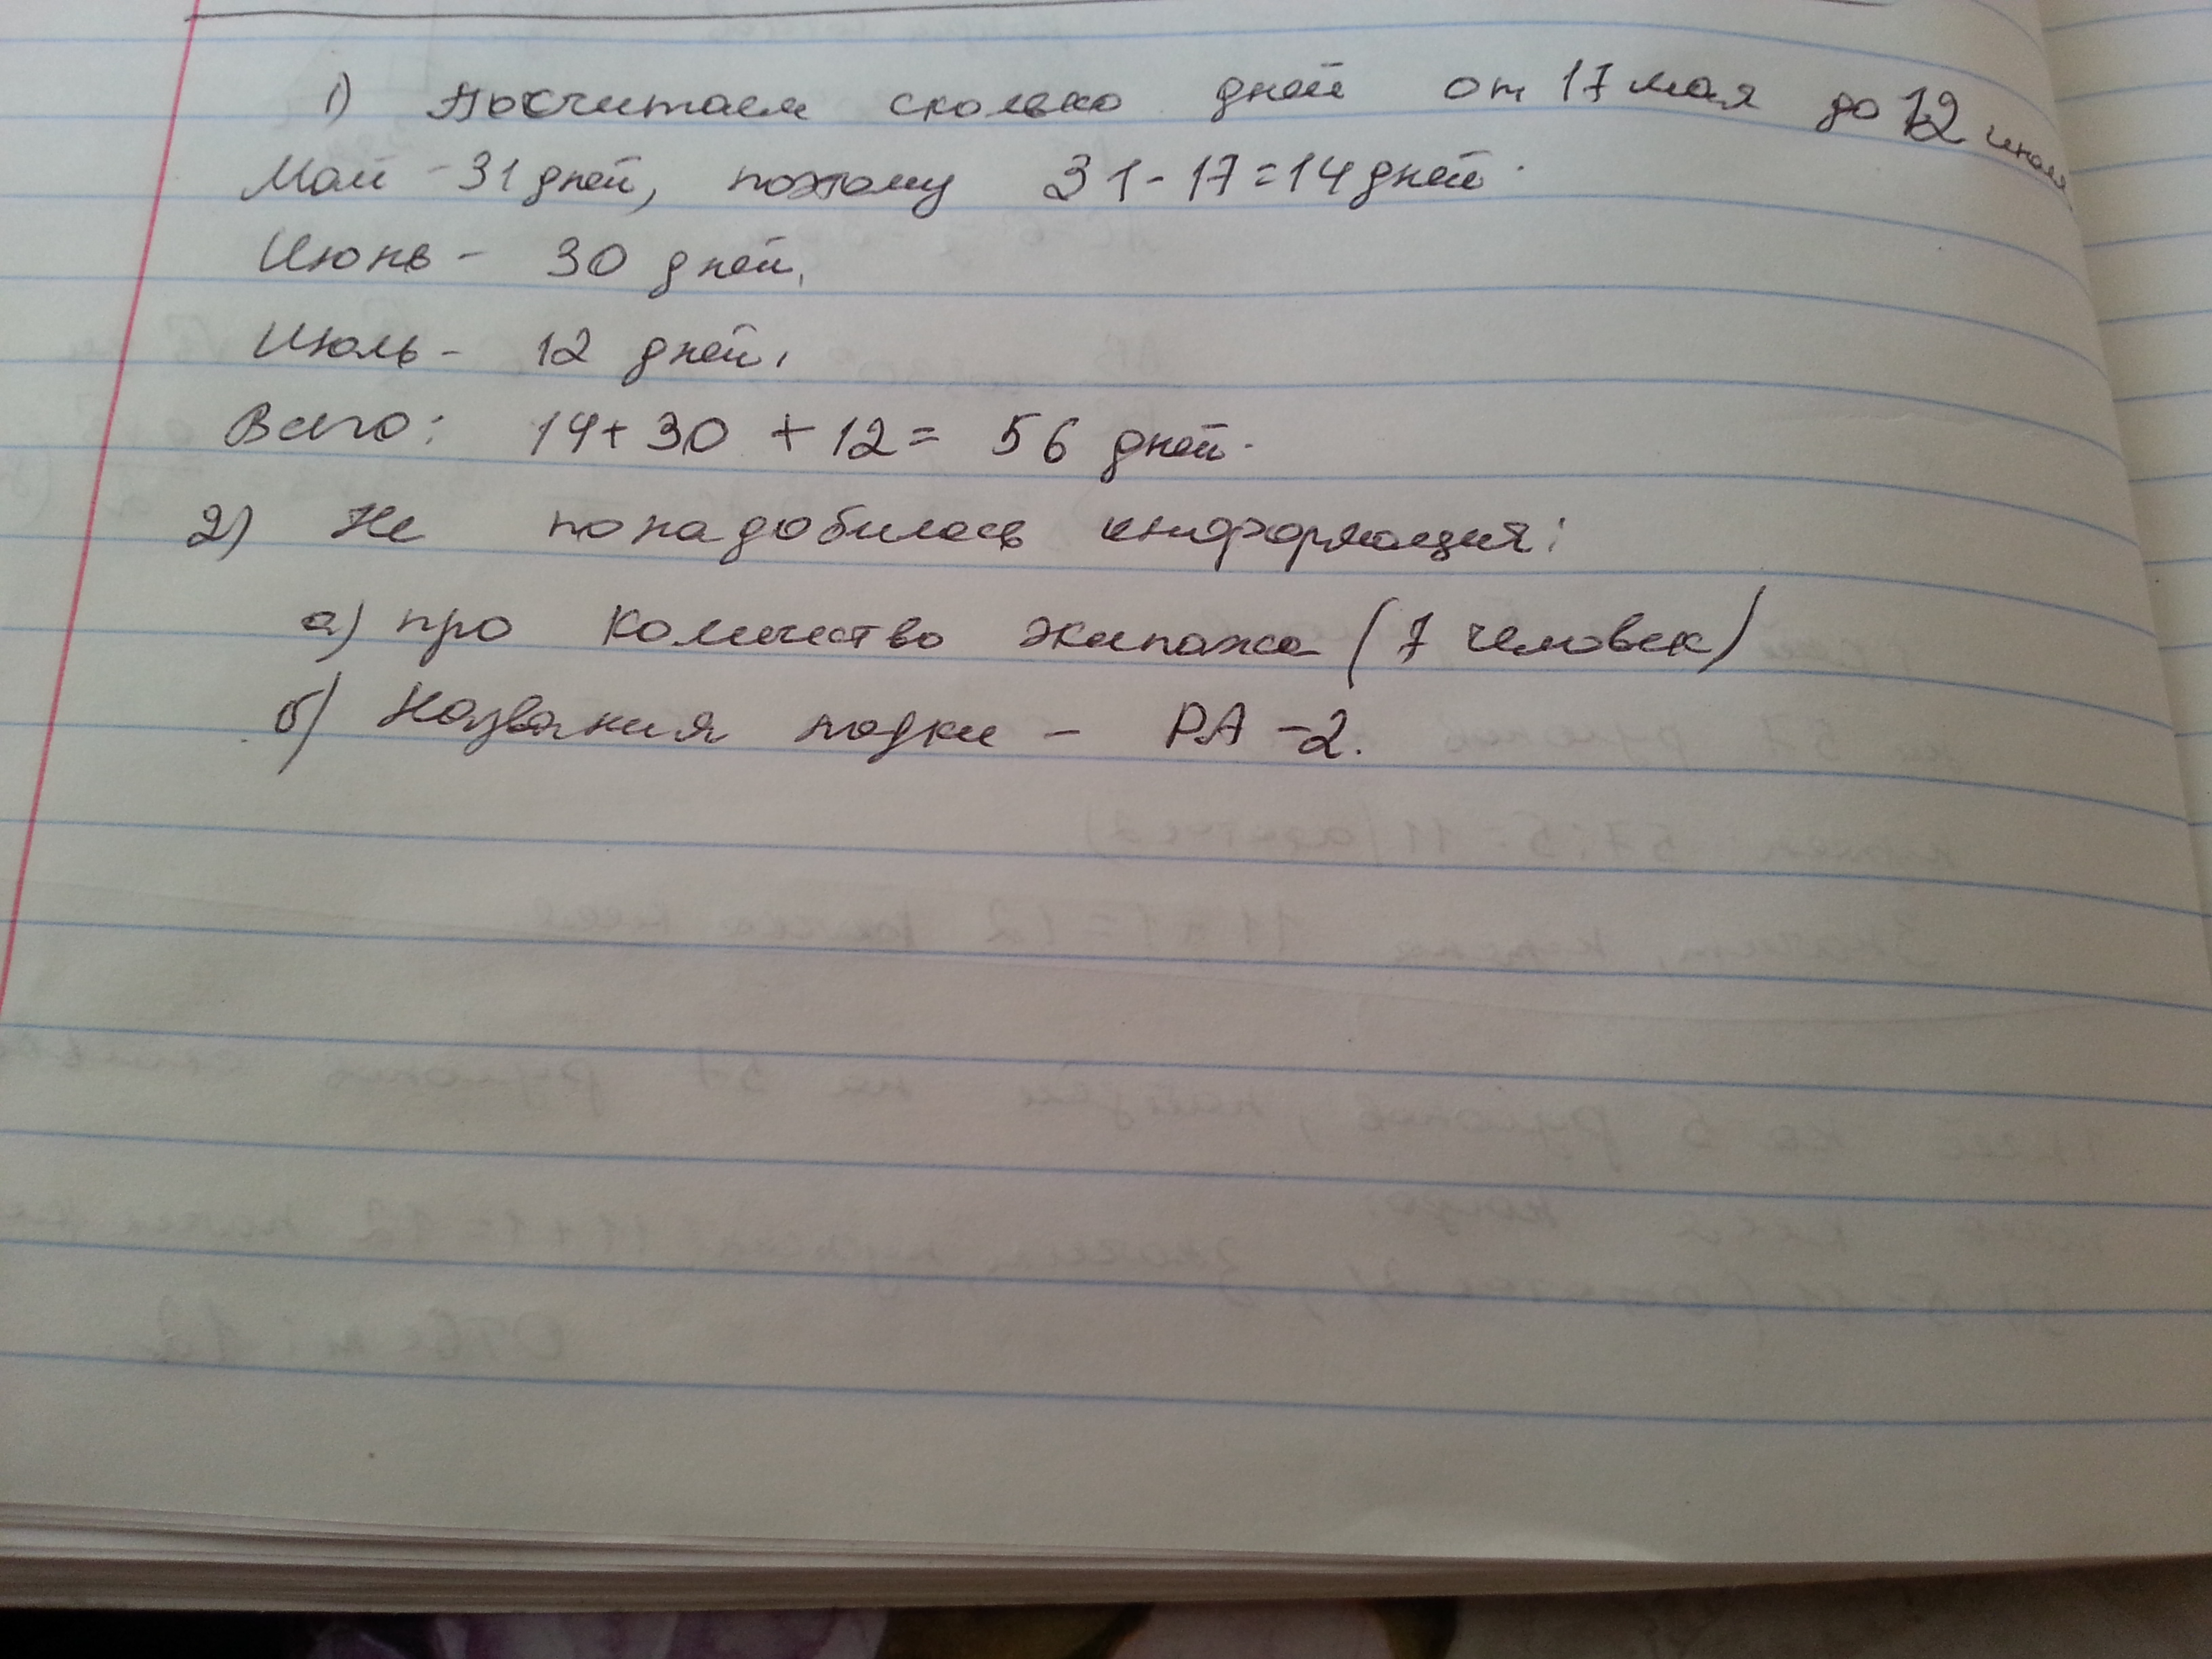 1) Посчитаем сколько дней от 17 мая до 12 июля
Май - 31 дней, поэтому 31 - 17 = 14 дней.
Июнь - 30 дней.
Июль - 12 дней.
Всего: 14 + 30 + 12 = 56 дней.
2) Не понадобилась информация:
а) про количество экипажа (7 человек)
б) Названия лодки - РА - 2.